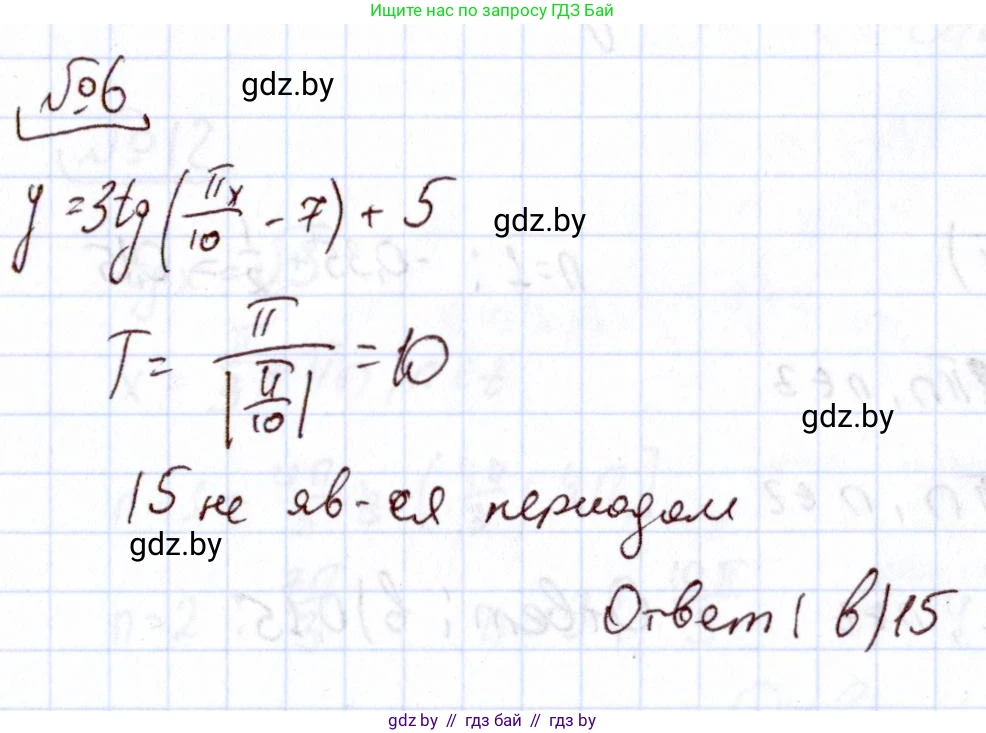 Ищите нас по запросу ГДЗ Бай
№6
gdz.by
y = 3tg(πx/10 - 7) + 5
gdz.by
T = π/|π/10| = 10
gdz.by
15 не яв-ся периодом
gdz.by
Ответ: в) 15
gdz by // гдз бай // gdz by